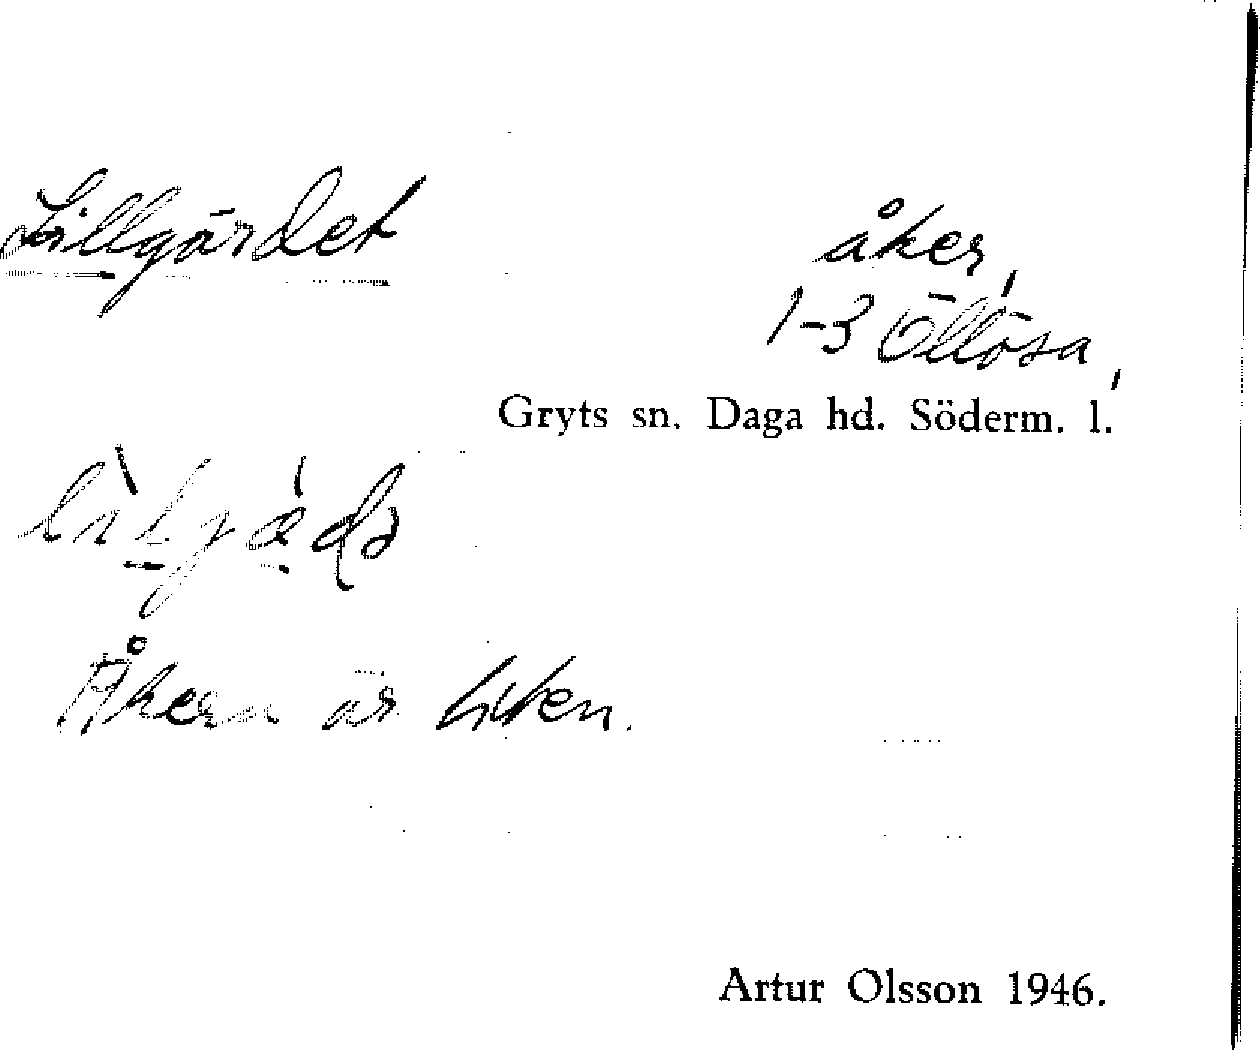 Lillgärdet
åker,
1-3 Öllösa,
Gryts sn. Daga hd. Söderm. l.
Åkern är liten.
Artur Olsson 1946.